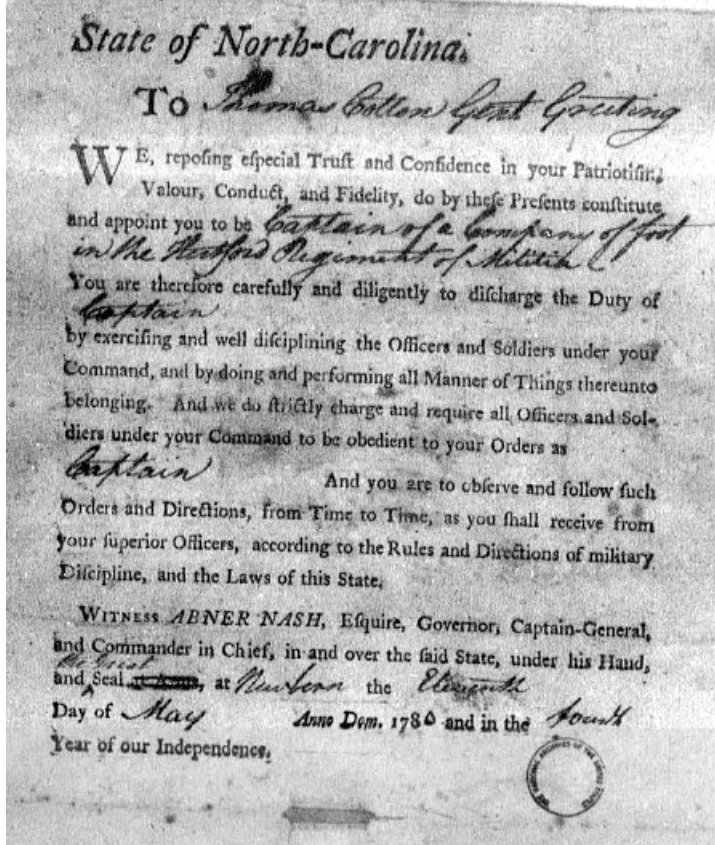 State of North-Carolina.
To Thomas Cotton Gent Greeting
WE, repoſing eſpecial Truſt and Confidence in your Patriotiſm,
Valour, Conduct, and Fidelity, do by theſe Preſents conſtitute
and appoint you to be Captain of a Company of foot
in the Hertford Regiment of Militia
You are therefore carefully and diligently to diſcharge the Duty of
Captain
by exerciſing and well diſciplining the Officers and Soldiers under your
Command, and by doing and performing all Manner of Things thereunto
belonging. And we do ſtrictly charge and require all Officers and Sol-
diers under your Command to be obedient to your Orders as
Captain And you are to obſerve and follow ſuch
Orders and Directions, from Time to Time, as you ſhall receive from
your ſuperior Officers, according to the Rules and Directions of military
Diſcipline, and the Laws of this State.
WITNESS ABNER NASH, Eſquire, Governor, Captain-General,
and Commander in Chief, in and over the ſaid State, under his Hand,
the Great
and Seal at at Newbern the Eleventh
Day of May Anno Dom. 1780 and in the fourth
Year of our Independence.
THE NATIONAL ARCHIVES OF THE UNITED STATES